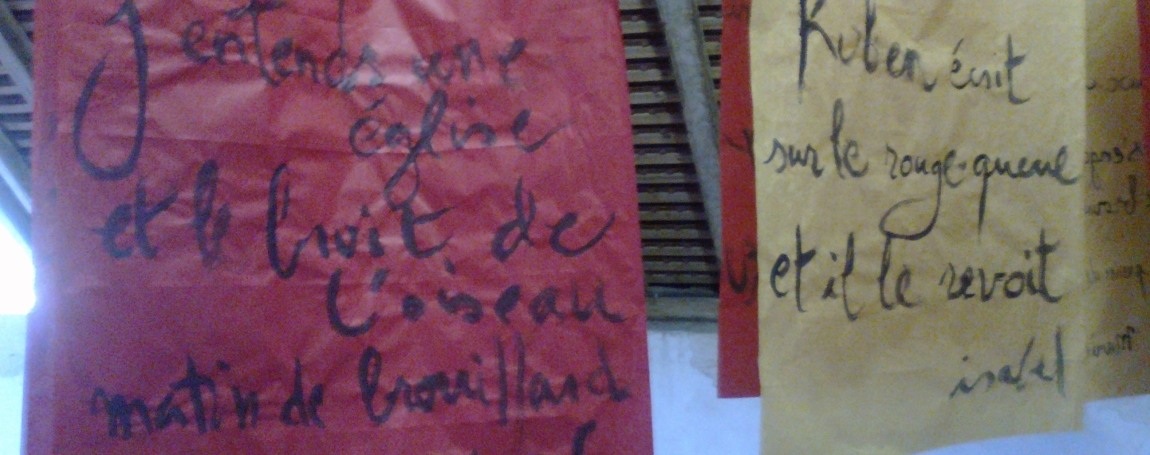 J'entends une
église
et le bruit de
l'oiseau
matin de brouillard
Ruben écrit
sur le rouge-queue
et il le revoit
isabel